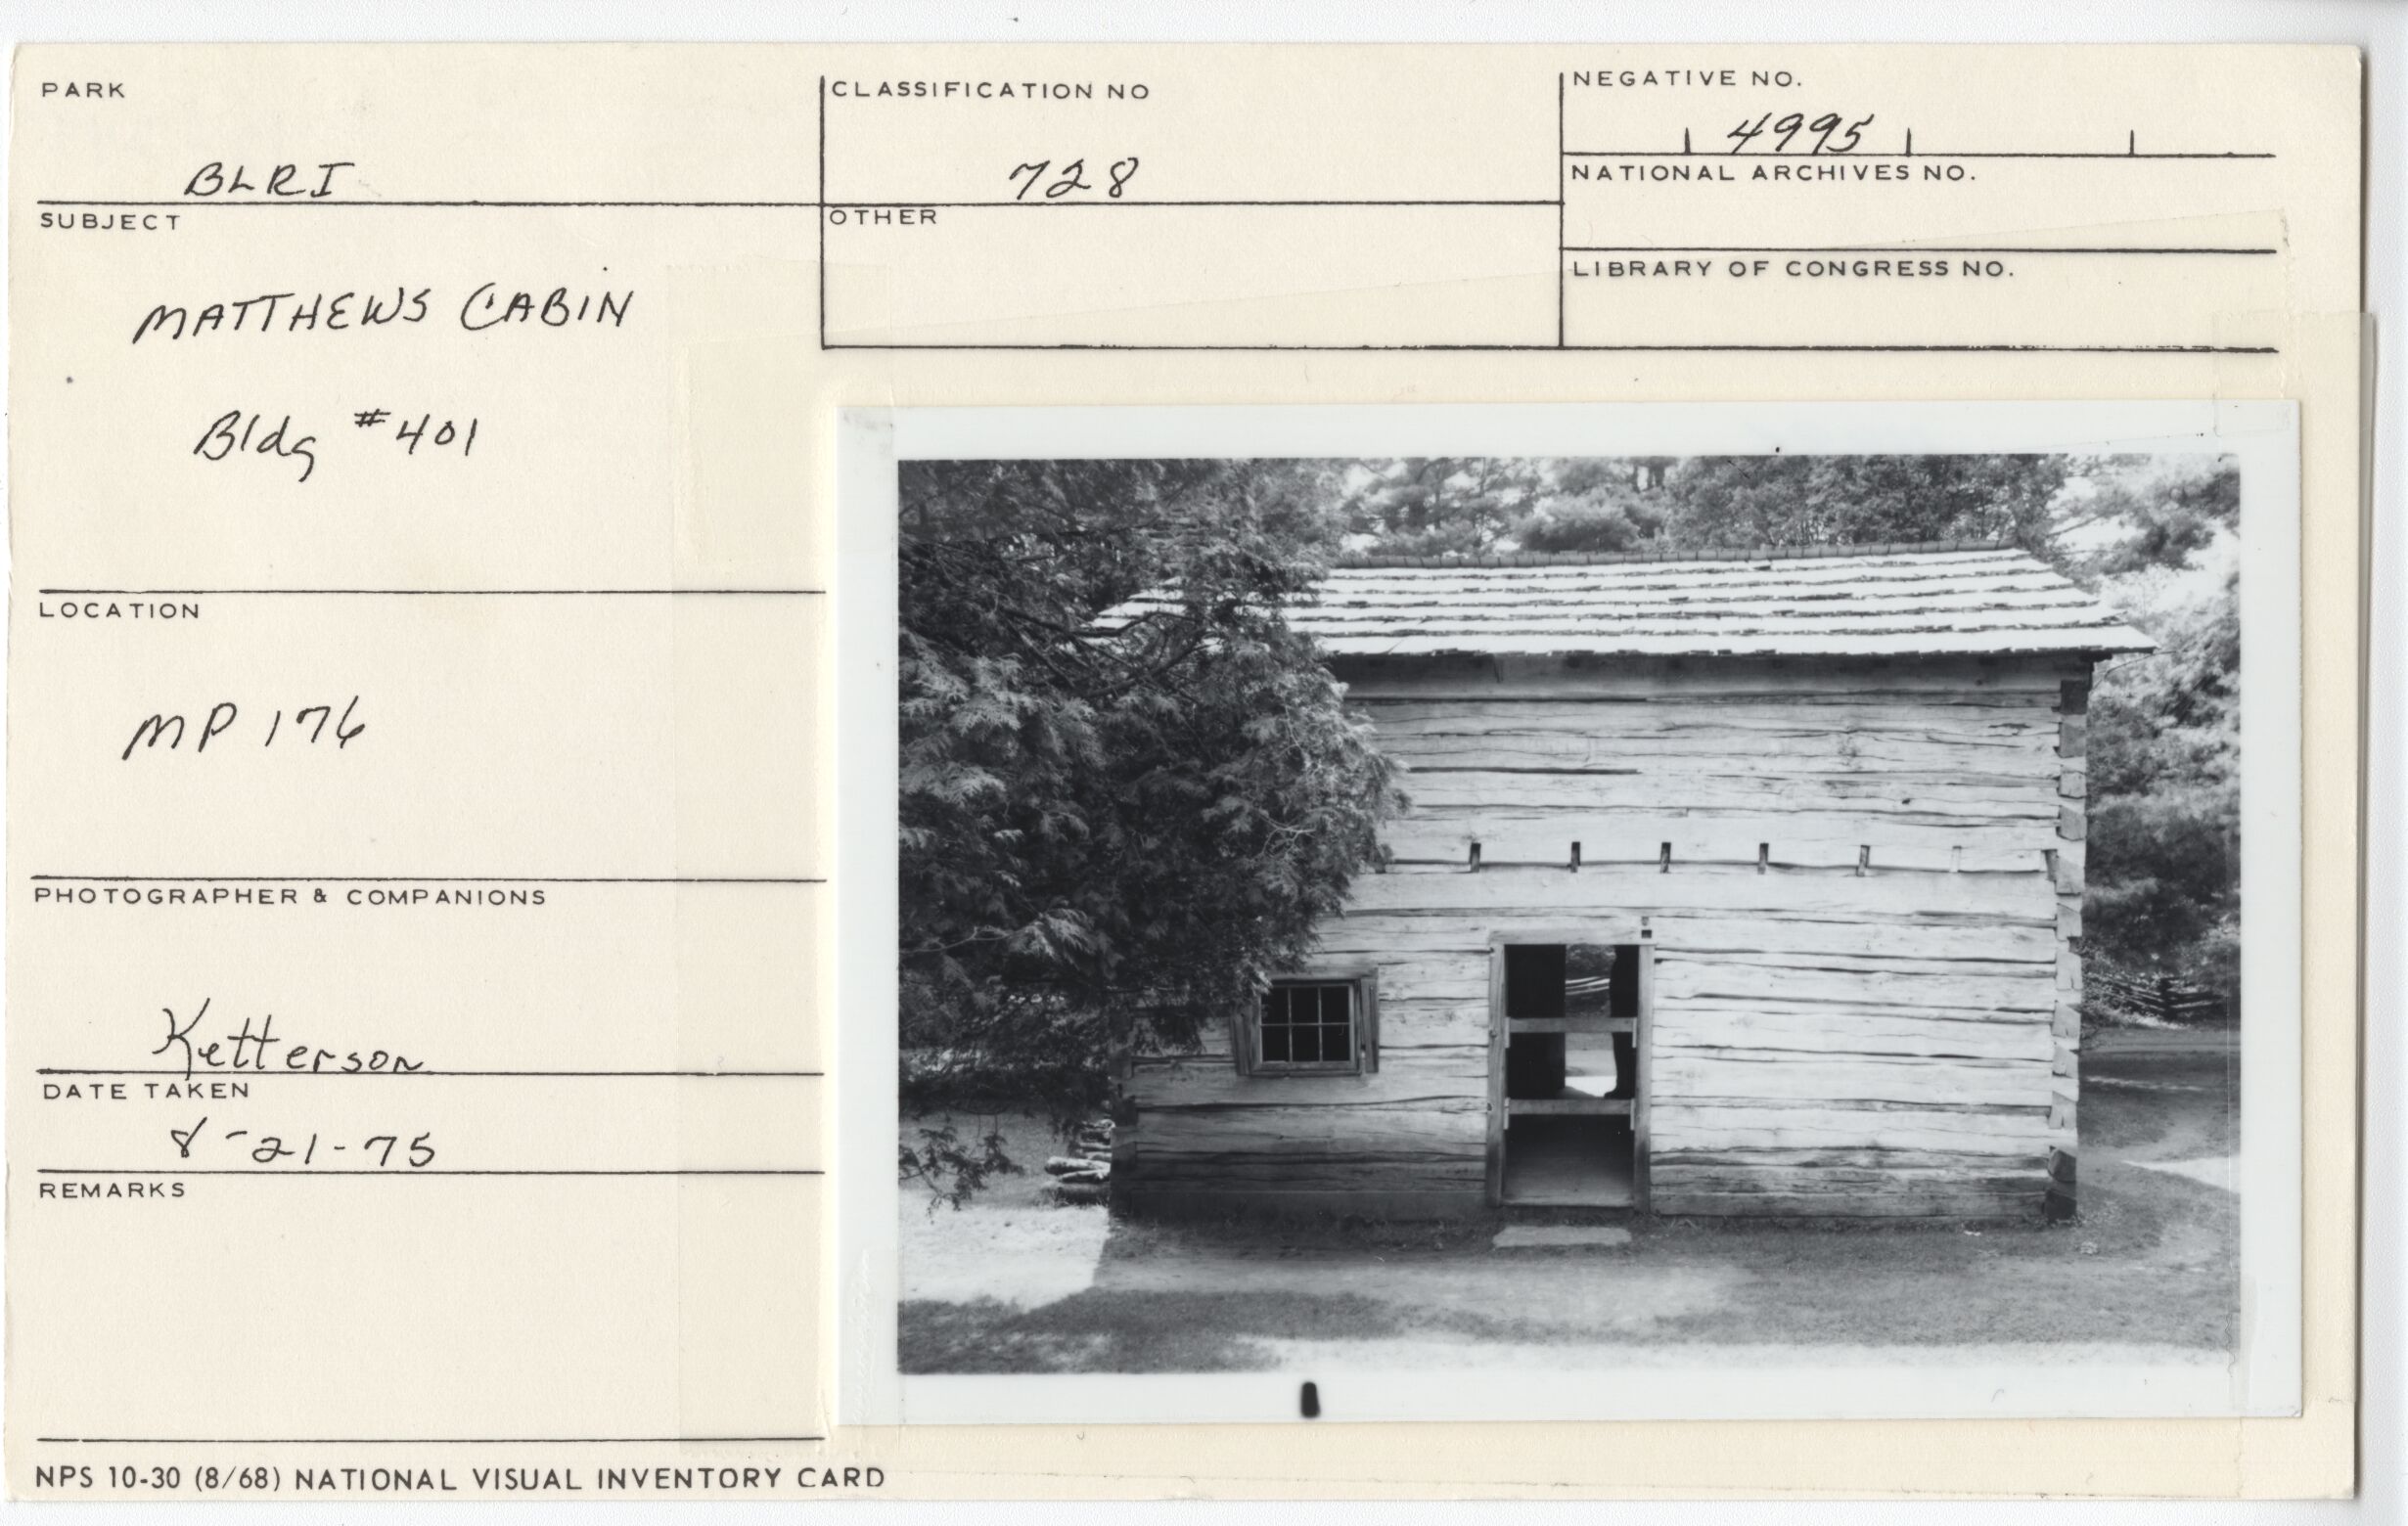 PARK
BLRI
CLASSIFICATION NO
728
NEGATIVE NO.
4995
NATIONAL ARCHIVES NO.
SUBJECT
MATTHEWS CABIN
Bldg #401
OTHER
LIBRARY OF CONGRESS NO.
LOCATION
MP 176
PHOTOGRAPHER & COMPANIONS
Ketterson
DATE TAKEN
8-21-75
REMARKS
NPS 10-30 (8/68) NATIONAL VISUAL INVENTORY CARD